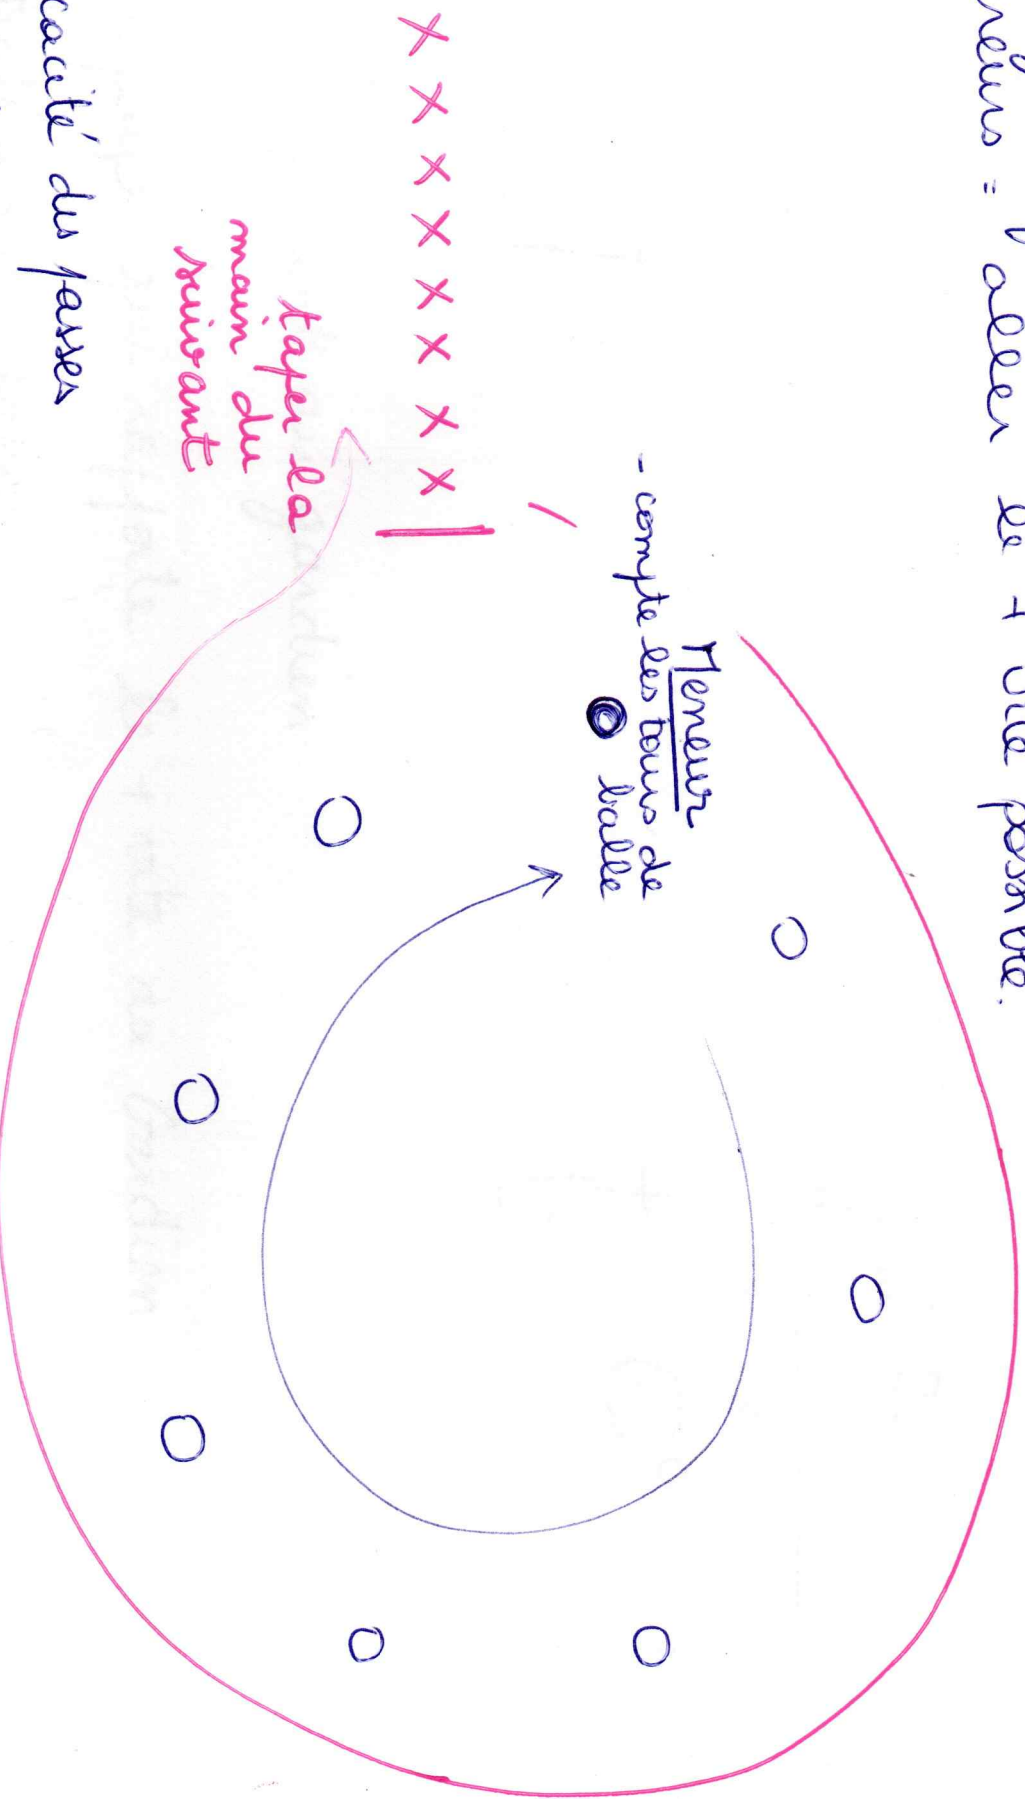 = aller le + vite possible.
Meneur
- compte les tours de
balle
taper la
main du
suivant
des passes